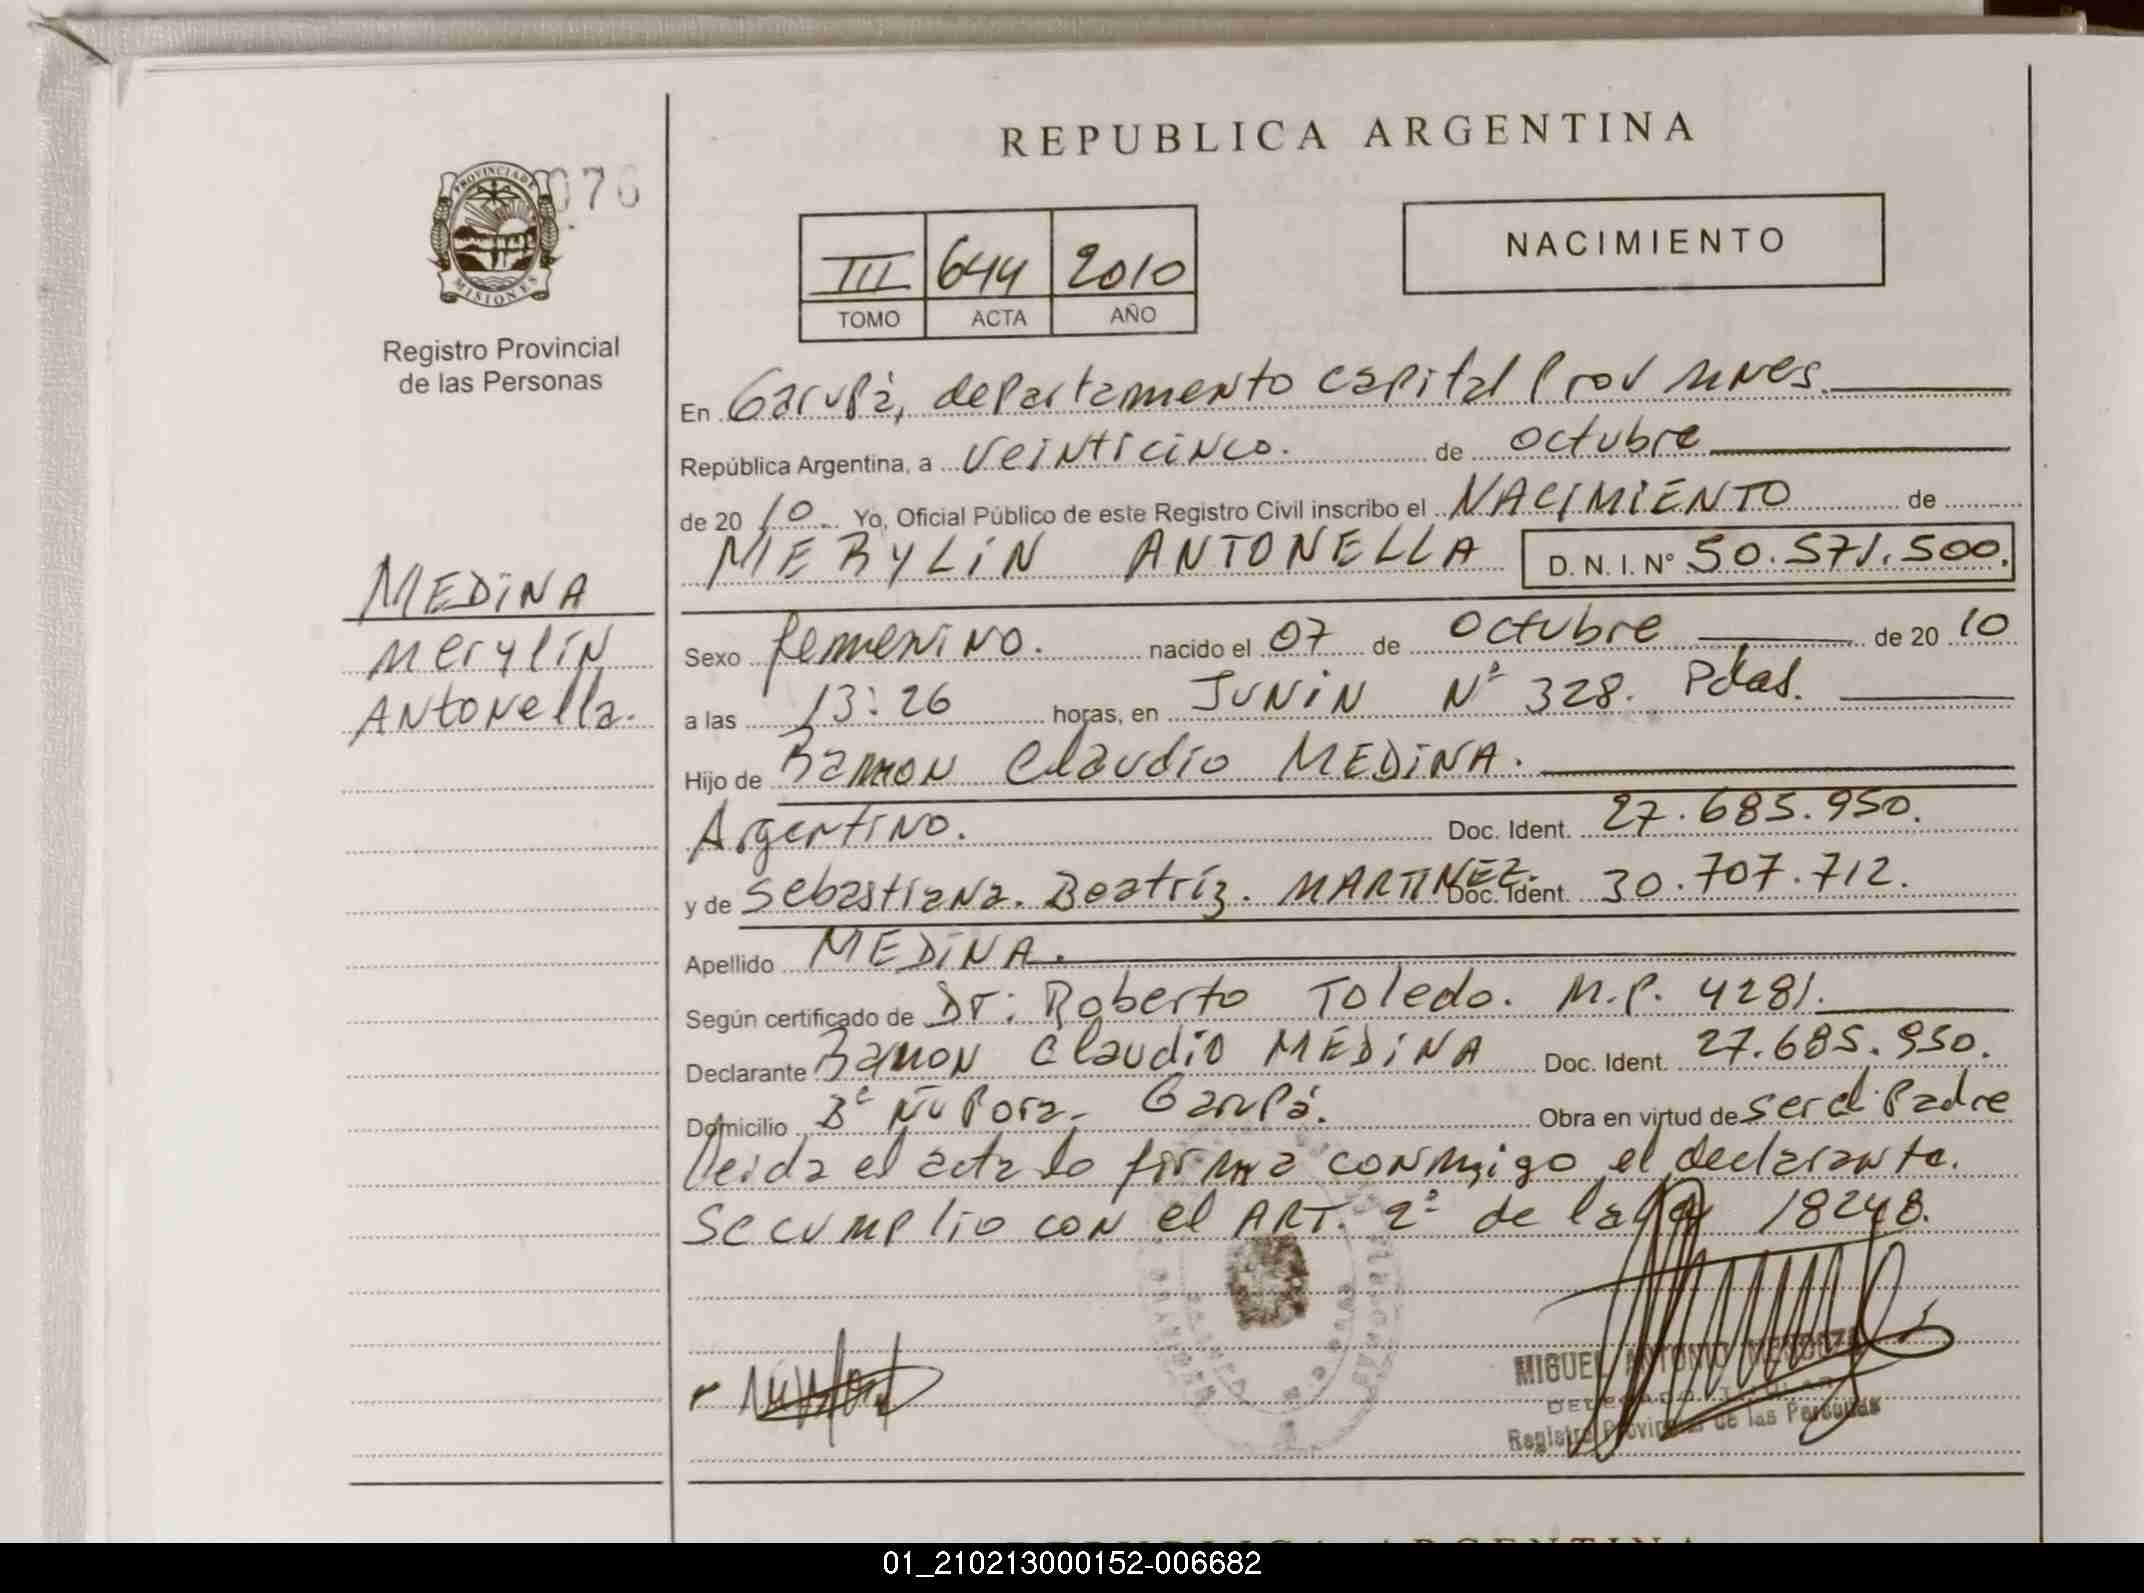 REPUBLICA ARGENTINA
076
PROVINCIA DE
MISIONES
Registro Provincial
de las Personas
III 644 2010
TOMO ACTA AÑO
NACIMIENTO
En Garupá, departamento capital Prov Mnes.
República Argentina, a veinticinco. de octubre
de 2010 Yo, Oficial Público de este Registro Civil inscribo el NACIMIENTO de
MERYLIN ANTONELLA D. N. I. Nº 50.571.500.
MEDINA
Merylin
Antonella.
Sexo femenino. nacido el 07 de Octubre de 2010
a las 13:26 horas, en JUNIN Nº 328. Pdas.
Hijo de Ramon Claudio MEDINA.
Argentino. Doc. Ident. 27.685.950.
y de Sebastiana. Beatríz. MARTINEZ. Doc. Ident. 30.707.712.
Apellido MEDINA.
Según certificado de Dr: Roberto Toledo. M.P. 4281.
Declarante Ramon Claudio MEDINA Doc. Ident. 27.685.950.
Domicilio Bº Ñu Pora. Garupá. Obra en virtud de ser el Padre
leida el acta lo firma conmigo el declarante.
Se cumplio con el ART. 2º de la ley 18248.
MIGUEL ANTONIO
Registro Provincial de las Personas
REPUBLICA ARGENTINA
01_210213000152-006682